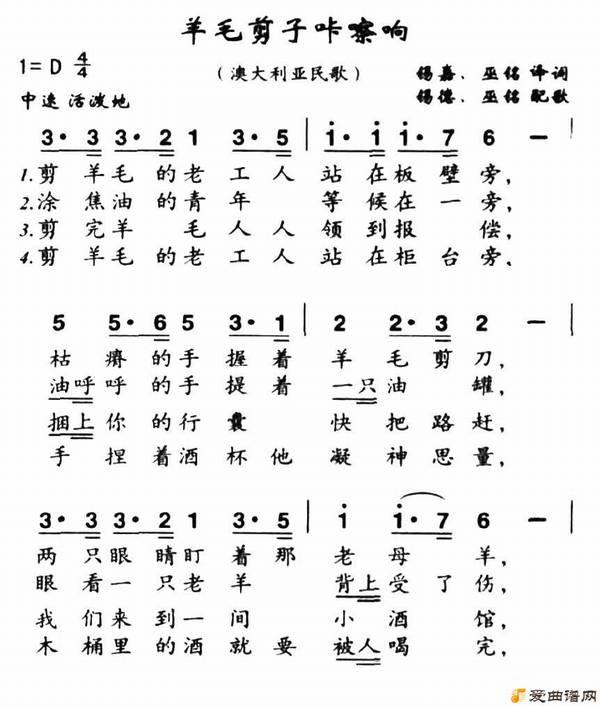 羊毛剪子咔嚓响
1=D 4/4
(澳大利亚民歌)
锡嘉、巫铭 译词
中速 活泼地
锡德、巫铭 配歌
3· 3 3· 2 1 3· 5 | i· i i· 7 6 — |
1.剪羊毛的老工人站在板壁旁,
2.涂焦油的青年等候在一旁,
3.剪完羊毛人人领到报偿,
4.剪羊毛的老工人站在柜台旁,
5 5· 6 5 3· 1 | 2 2· 3 2 — |
枯瘠的手握着羊毛剪刀,
油呼呼的手提着一只油罐,
捆上你的行囊快把路赶,
手捏着酒杯他凝神思量,
3· 3 3· 2 1 3· 5 | i i· 7 6 — |
两只眼睛盯着那老母羊,
眼看一只老羊背上受了伤,
我们来到一间小酒馆,
木桶里的酒就要被人喝完,
爱曲谱网